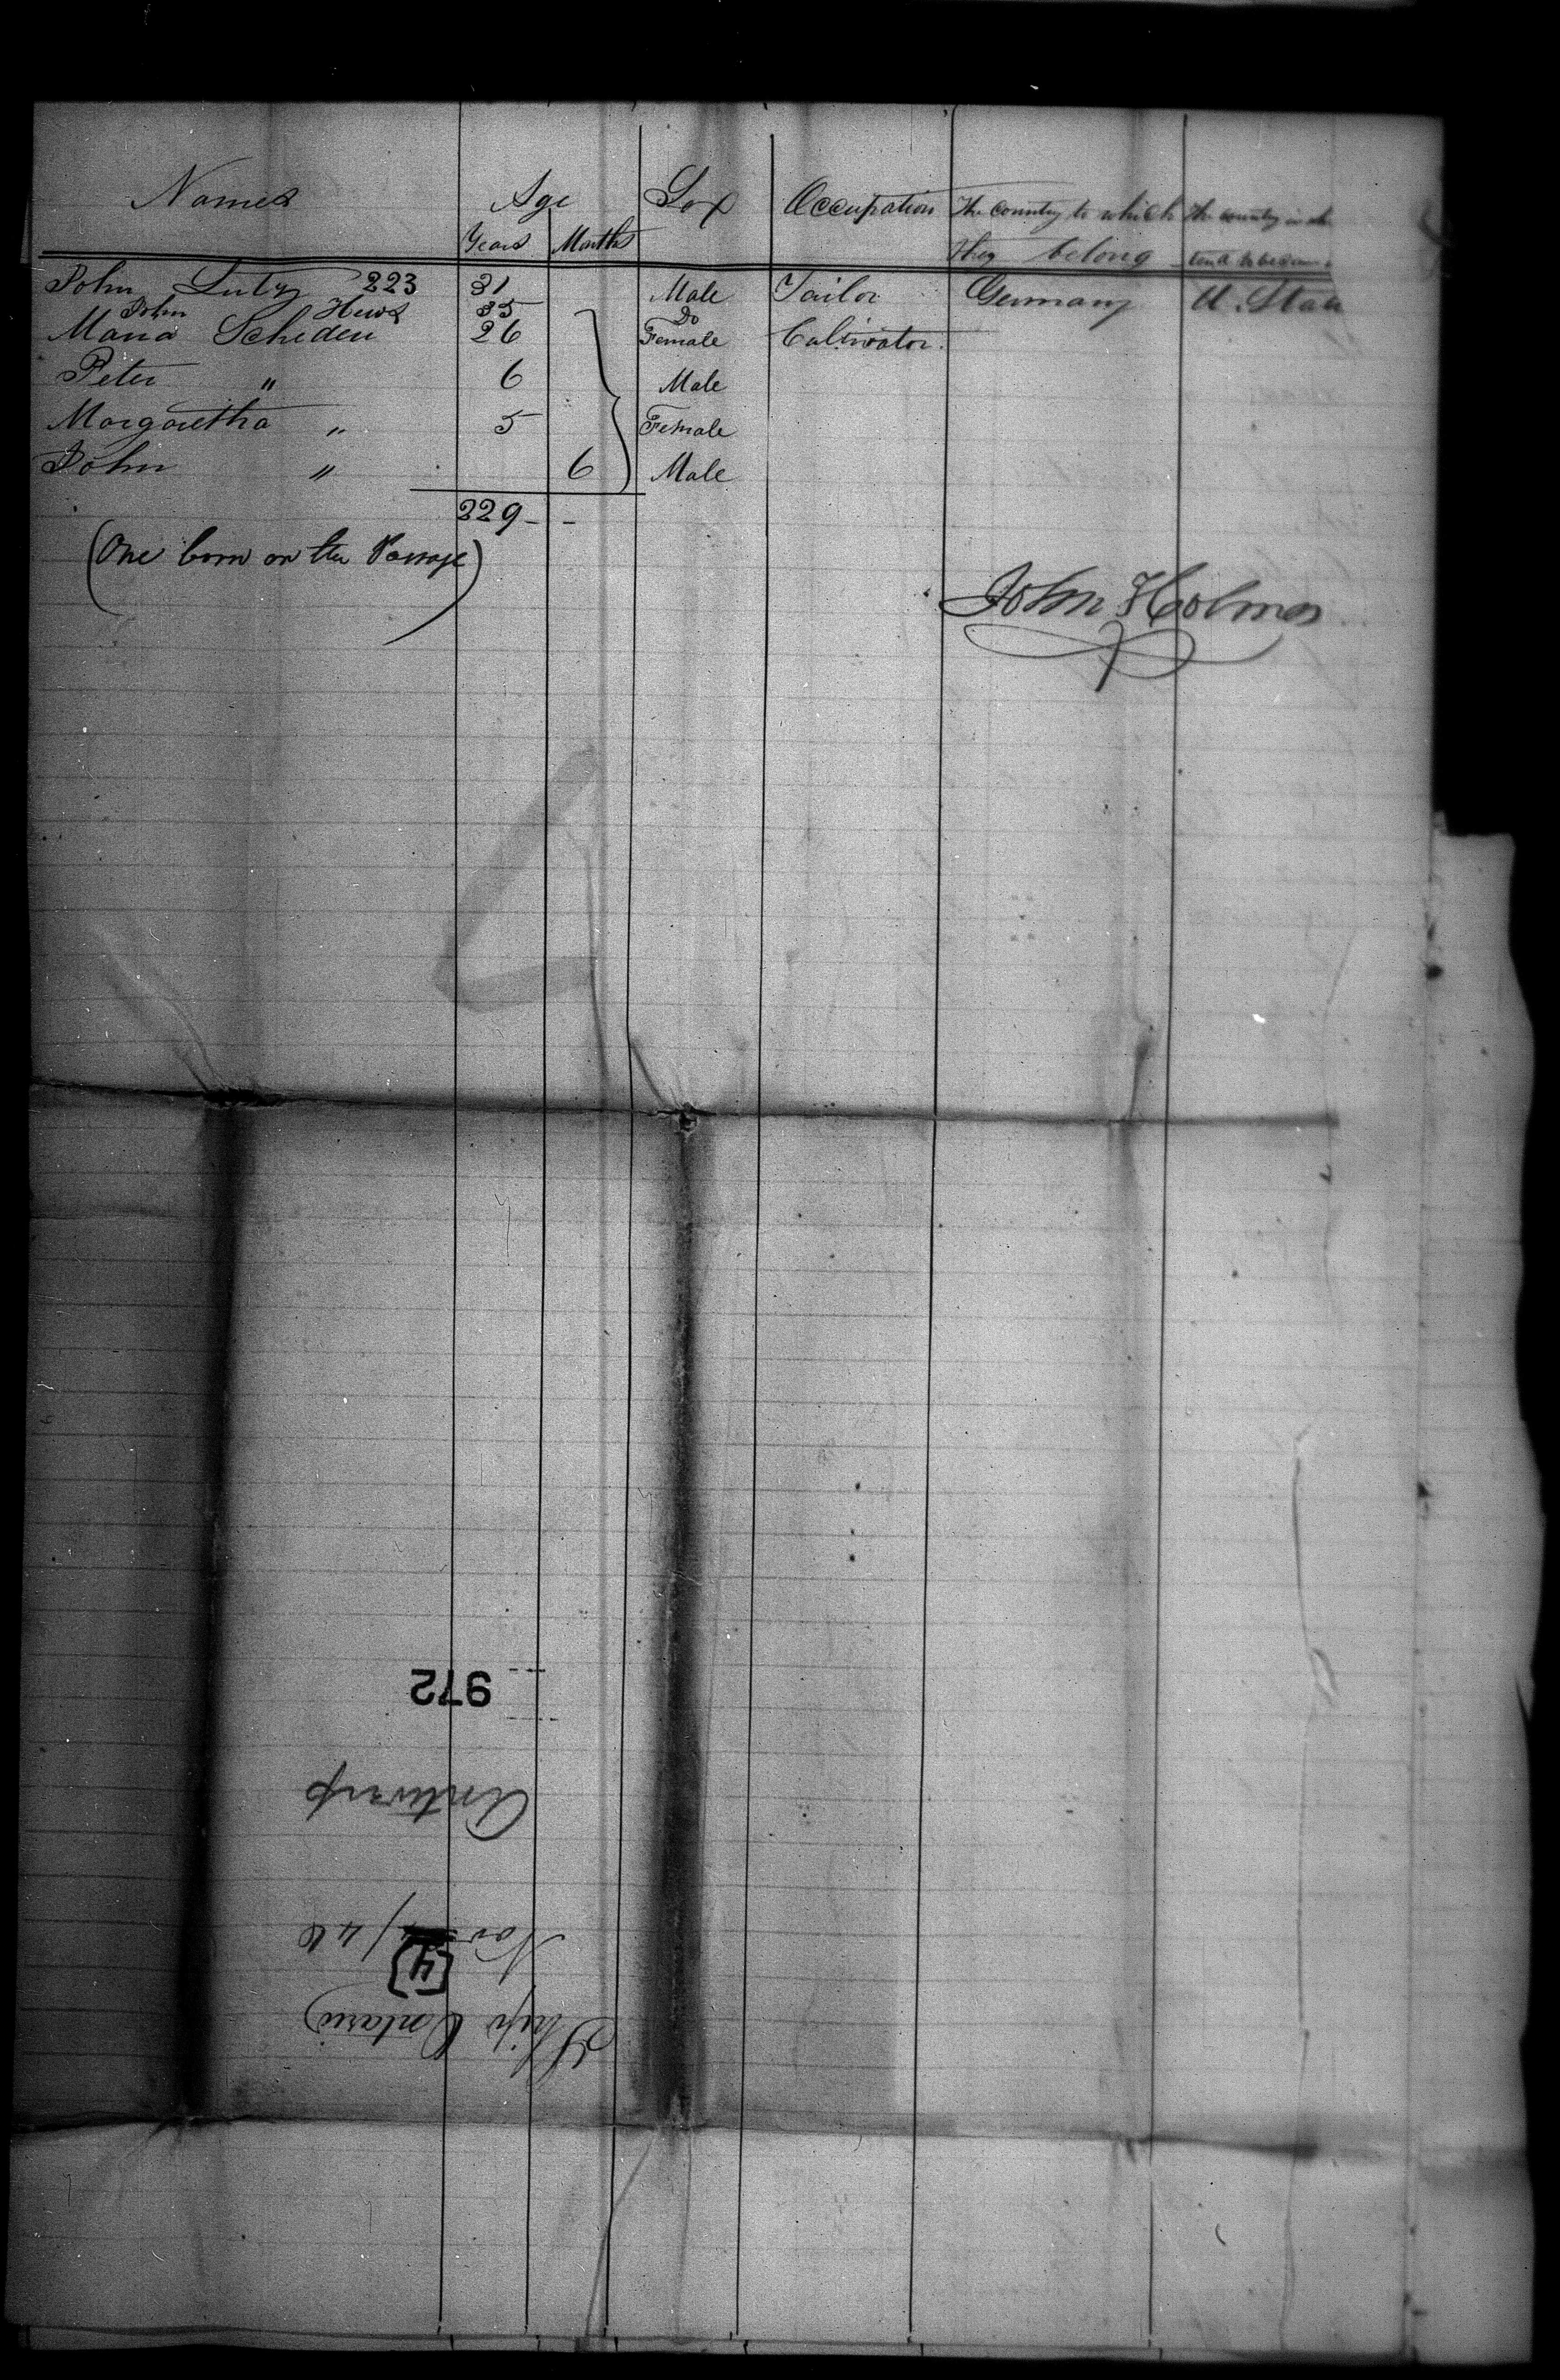 Names Age Sex Occupation The country to which The country in wh
Years Months they belong tend to become
John Lutz 223 31 Male Tailor Germany U. Stat
John Hews 35 Do
Maria Scheden 26 Female Cultivator.
Peter " 6 Male
Margaretha " 5 Female
John " 6 Male
229 - -
(One born on the Passage)
John Holmes
972
Antwerp
Nov /46
[4]
Ship Ontario